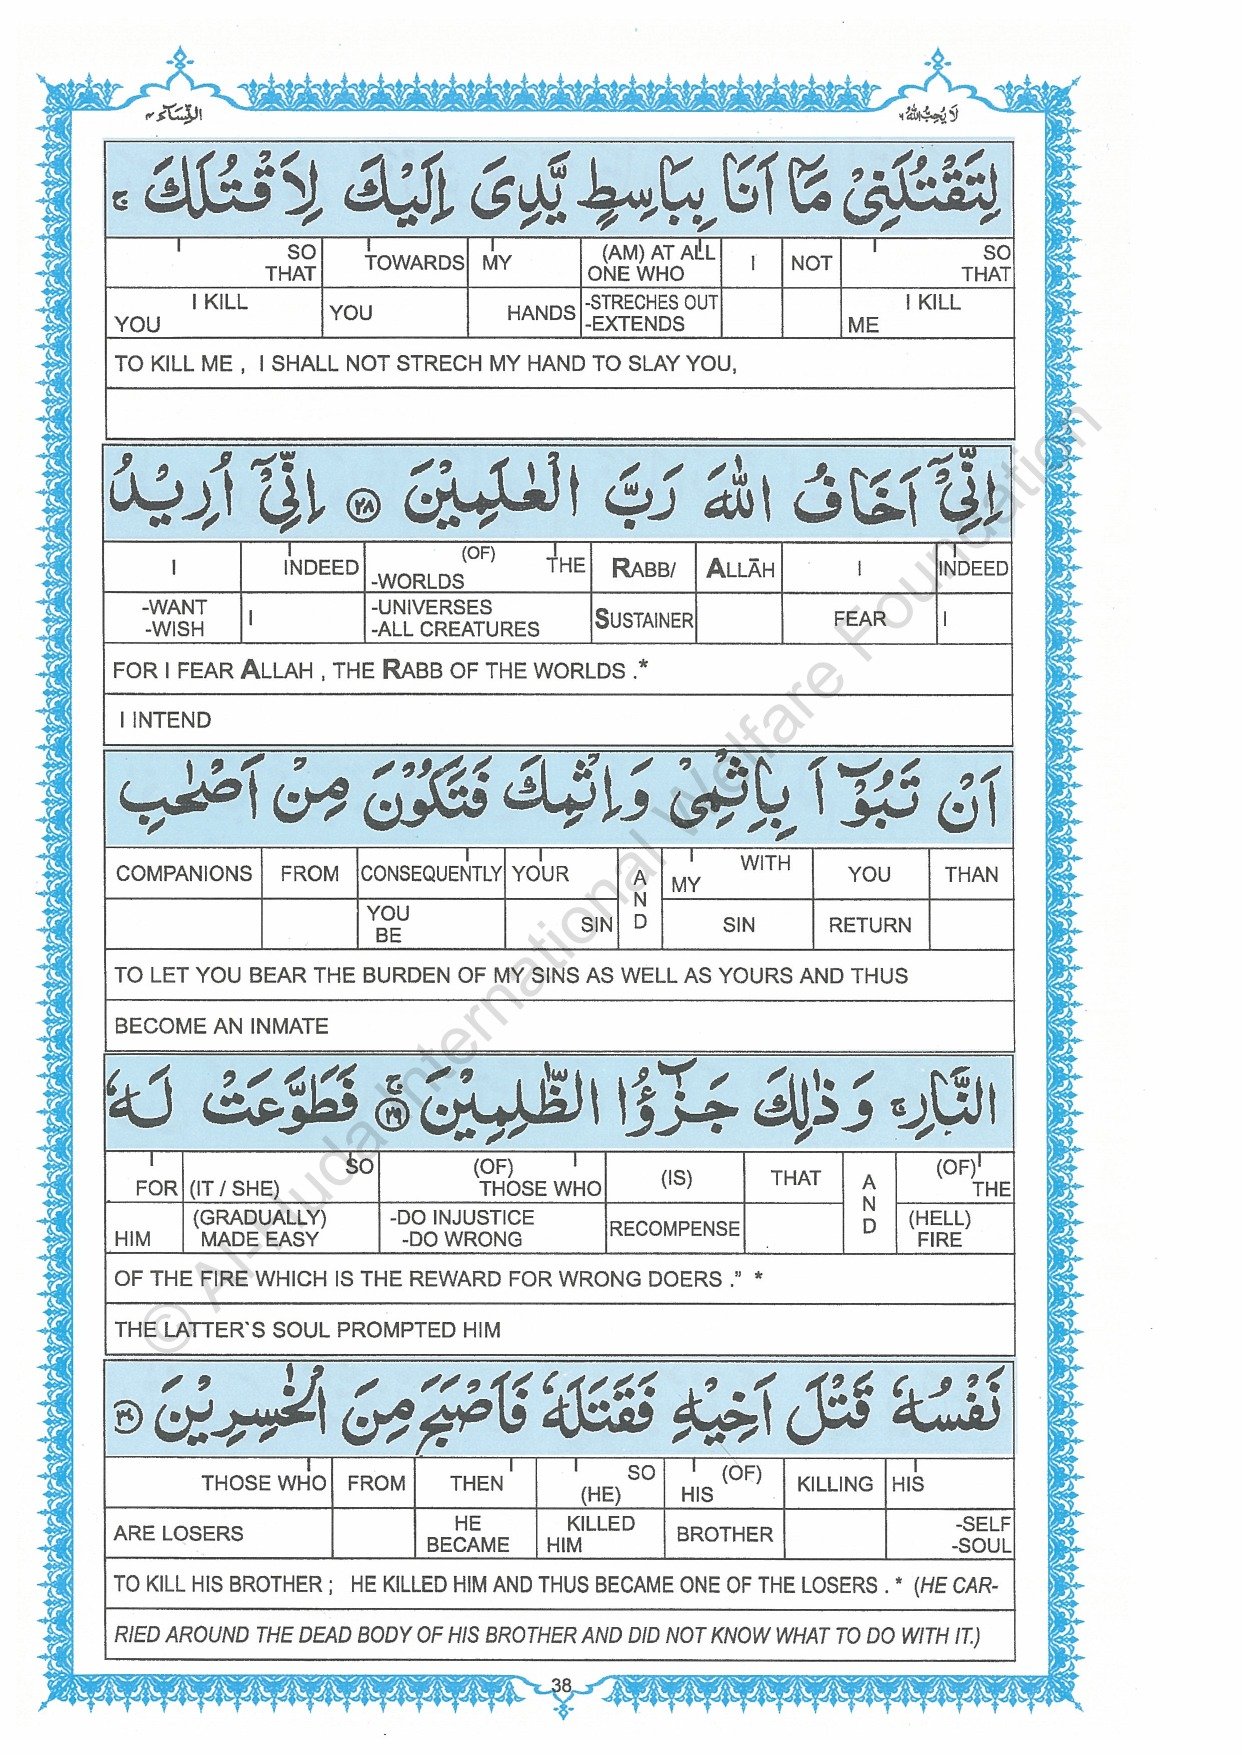 النِّسَآء ٤
لَا يُحِبُّ اللّٰهُ ٦
لِتَقْتُلَنِىْ مَآ اَنَا بِبَاسِطٍ يَّدِىَ اِلَيْكَ لِاَقْتُلَكَ ۚ
SO TOWARDS MY (AM) AT ALL I NOT SO
THAT ONE WHO THAT
I KILL YOU HANDS -STRECHES OUT I KILL
YOU -EXTENDS ME
TO KILL ME , I SHALL NOT STRECH MY HAND TO SLAY YOU,
اِنِّىْٓ اَخَافُ اللّٰهَ رَبَّ الْعٰلَمِيْنَ ﴿٢٨﴾ اِنِّىْٓ اُرِيْدُ
I INDEED (OF) THE RABB/ ALLĀH I INDEED
-WORLDS
-WANT I -UNIVERSES SUSTAINER FEAR I
-WISH -ALL CREATURES
FOR I FEAR ALLAH , THE RABB OF THE WORLDS .*
I INTEND
اَنْ تَبُوْٓاَ بِاِثْمِىْ وَاِثْمِكَ فَتَكُوْنَ مِنْ اَصْحٰبِ
COMPANIONS FROM CONSEQUENTLY YOUR AND MY WITH YOU THAN
YOU SIN SIN RETURN
BE
TO LET YOU BEAR THE BURDEN OF MY SINS AS WELL AS YOURS AND THUS
BECOME AN INMATE
النَّارِ ۚ وَذٰلِكَ جَزٰٓؤُا الظّٰلِمِيْنَ ﴿٢٩﴾ ۚ فَطَوَّعَتْ لَهٗ
SO (OF) (IS) THAT AND (OF)
FOR (IT / SHE) THOSE WHO THE
(GRADUALLY) -DO INJUSTICE RECOMPENSE (HELL)
HIM MADE EASY -DO WRONG FIRE
OF THE FIRE WHICH IS THE REWARD FOR WRONG DOERS .” *
THE LATTER`S SOUL PROMPTED HIM
نَفْسُهٗ قَتْلَ اَخِيْهِ فَقَتَلَهٗ فَاَصْبَحَ مِنَ الْخٰسِرِيْنَ ﴿٣٠﴾
THOSE WHO FROM THEN SO (OF) KILLING HIS
(HE) HIS
ARE LOSERS HE KILLED BROTHER -SELF
BECAME HIM -SOUL
TO KILL HIS BROTHER ; HE KILLED HIM AND THUS BECAME ONE OF THE LOSERS . * (HE CAR-
RIED AROUND THE DEAD BODY OF HIS BROTHER AND DID NOT KNOW WHAT TO DO WITH IT.)
38
© Al-Huda International Welfare Foundation